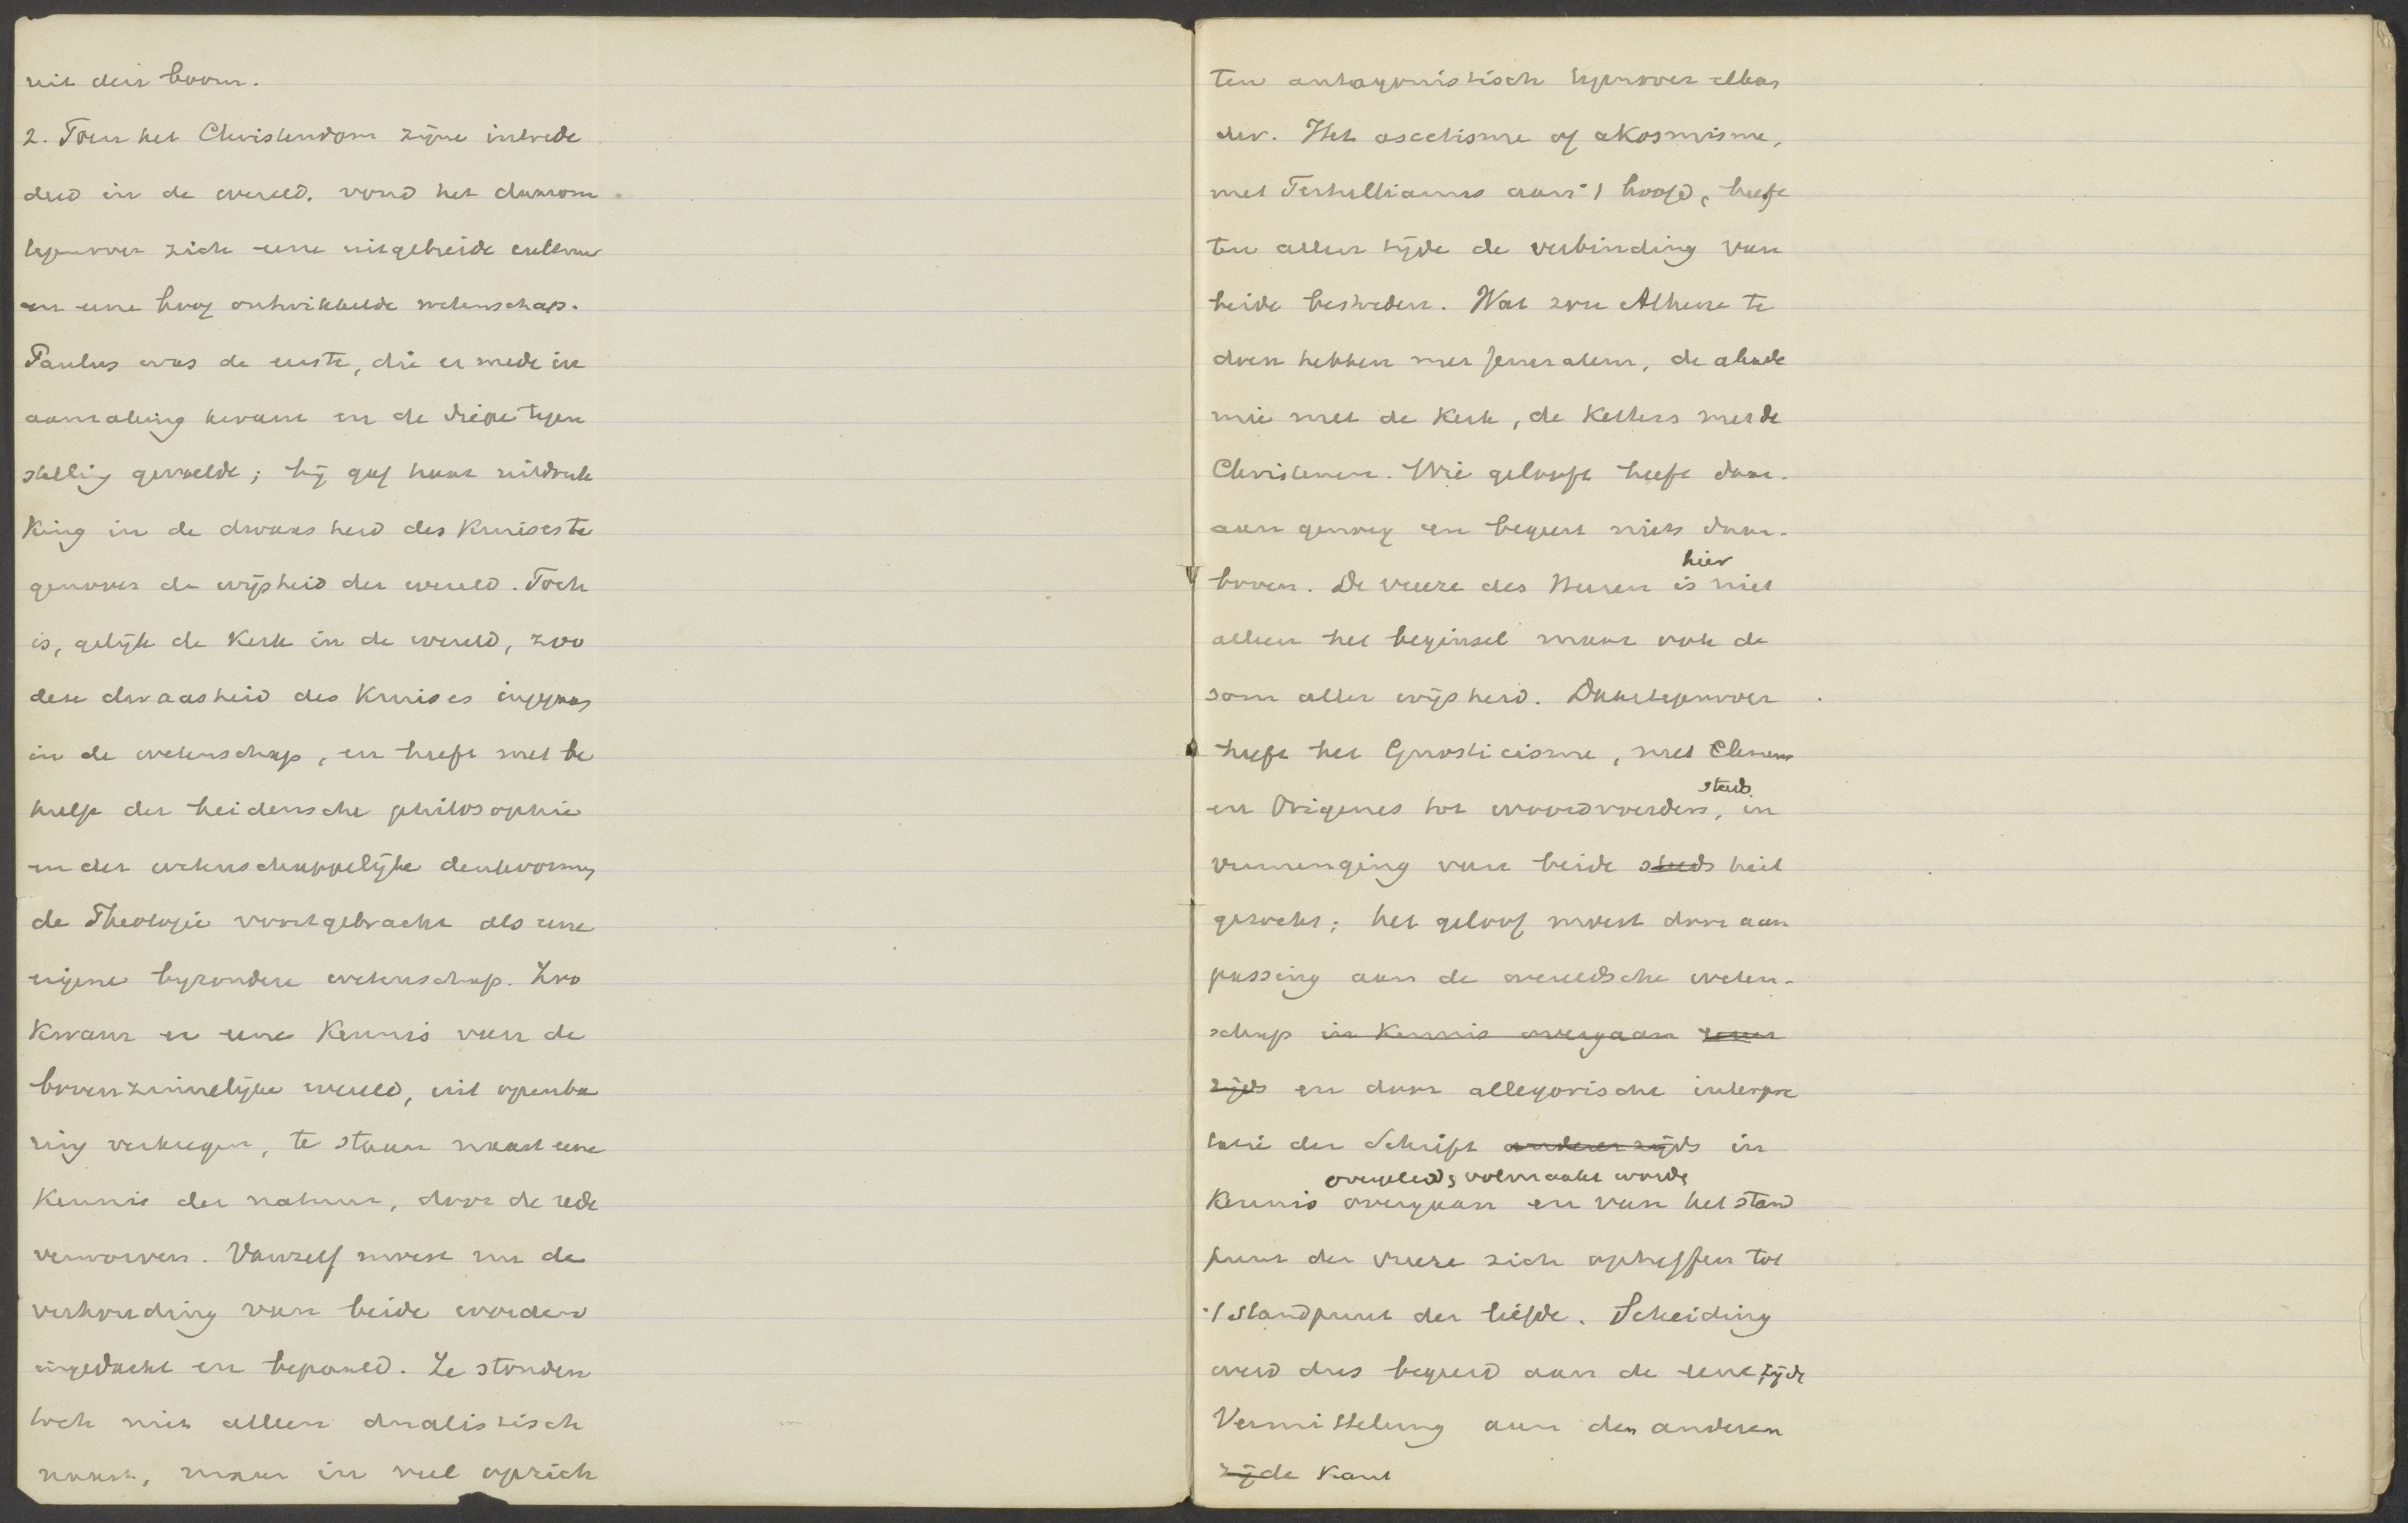 uit den boom.
2. Toen het Christendom zijne intrede
deed in de wereld, vond het daarom
tegenover zich eene uitgebreide cultuur
en eene hoog ontwikkelde wetenschap.
Paulus was de eerste, die er mede in
aanraking kwam en de diepe tegen
stelling gevoelde; hij gaf haar uitdruk
king in de dwaasheid des Kruises te
genover de wijsheid der wereld. Toch
is, gelijk de Kerk in de wereld, zoo
deze dwaasheid des Kruises ingegaan
in de wetenschap, en heeft met be
hulp der heidensche philosophie
en der wetenschappelijke denkvormen
de Theologie voortgebracht als eene
eigene byzondere wetenschap. Zoo
kwam er eene Kennis van de
bovenzinnelijke wereld, uit openba
ring verkregen, te staan naast eene
Kennis der natuur, door de rede
verworven. Vanzelf moest nu de
verhouding van beide worden
ingedacht en bepaald. Ze stonden
toch niet alleen dualistisch
naast, maar in veel opzich
ten antagonistisch tegenover elkan
der. Het ascetisme of akosmisme,
met Tertullianus aan 't hoofd, heeft
ten allen tijde de verbinding van
beide bestreden. Wat zou Athene te
doen hebben met Jeruzalem, de akade
mie met de Kerk, de Ketters met de
Christenen. Wie gelooft heeft daar-
aan genoeg en begeert niets daar-
hier
boven. De vreeze des Heeren is niet
alleen het beginsel maar ook de
som aller wijsheid. Daartegenover
heeft het Gnosticisme, met Clemens
steeds
en Origenes tot woordvoerders, in
vermenging van beide steeds heil
gezocht; het geloof moest door aan
passing aan de wereldsche weten-
schap in Kennis overgaan eener
zijds en door allegorische interpre
tatie der Schrift andererzijds in
overgeleid & volmaakt worde
Kennis overgaan en van het stand
punt der vreeze zich opheffen tot
't standpunt der liefde. Scheiding
werd dus begeerd aan de eene zijde
Vermittelung aan den anderen
zijde Kant